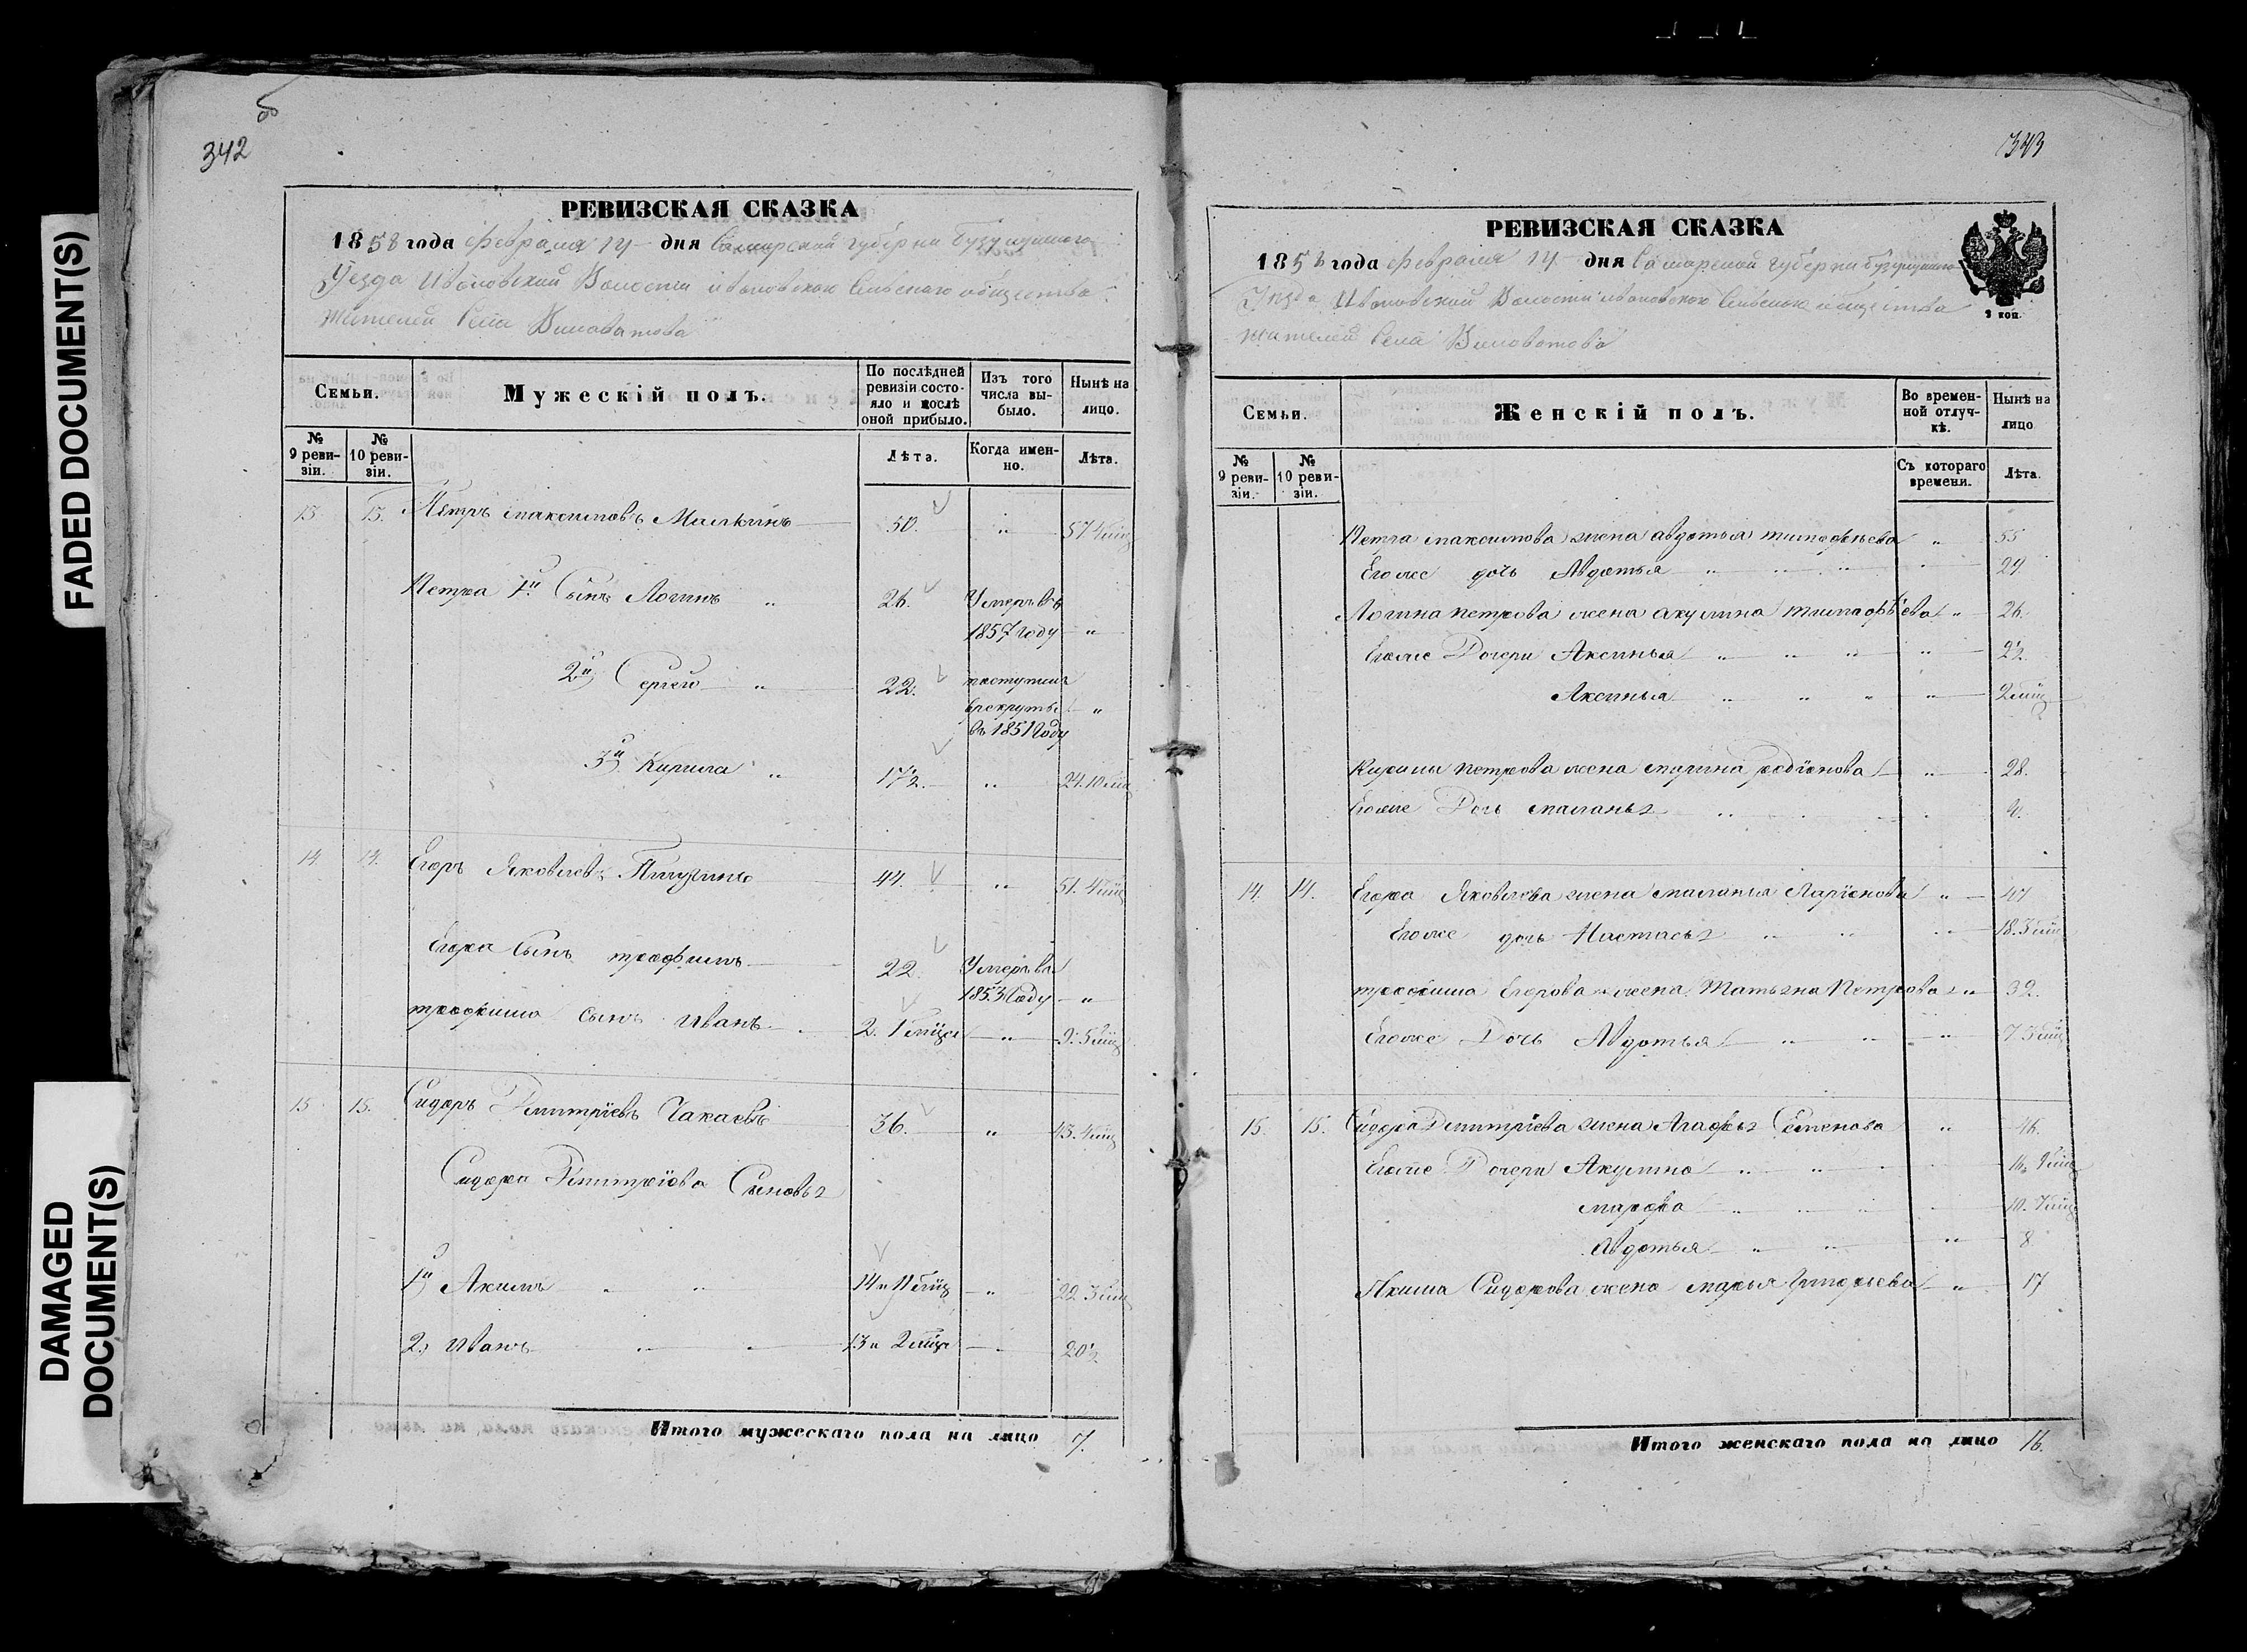 FADED DOCUMENT(S)
DAMAGED
DOCUMENT(S)
342
об
РЕВИЗСКАЯ СКАЗКА
1858 года Февраля 14 дня Самарской губерни Бузулукского
Уезда Ивановской Волости ивановского Сельскаго общества
жителей Села Виловатова
Семьи.
Мужескій полъ.
По послѣдней ревизіи состояло и послѣ оной прибыло.
Изъ того числа выбыло.
Нынѣ на лицо.
№ 9 ревизіи.
№ 10 ревизіи.
Лѣта.
Когда именно.
Лѣта.
13 13. Петръ максимовъ 50. " 57
Петра 1й Сынъ Логинъ " 26. Умеръ въ
1857 году "
2й Сергей " 22. поступил
в рекруты "
въ 1851 году
3й Кирила " 17½ " 24. 10 мц
14 14. Егоръ Яковлевъ 44. " 51. 4 мц
Егора Сынъ трофимъ 22 Умеръ въ
1853 году "
трофима сынъ иванъ 2. 1 мца " 9. 5 мц
15 15. Сидоръ Дмитріевъ Чакаевъ 36. " 43. 4 мц
Сидора Дмитріева Сыновья
1й Акимъ " " 14 и 11 мц " 22 3 мц
2. иванъ " " 13 и 2 мца " 20½
Итого мужескаго пола на лицо 7.
343
РЕВИЗСКАЯ СКАЗКА
1858 года Февраля 14 дня Самарской губерни бузулукского
Уезда Ивановской Волости ивановского Сельскаго общества
жителей Села Виловатова
2 коп.
Семьи.
Женскій полъ.
Во временной отлучкѣ.
Нынѣ на лицо
№ 9 ревизіи.
№ 10 ревизіи.
Съ котораго времени.
Лѣта.
Петра максимова жена авдотья тимофеева " 55
Его же дочь Авдотья " " " " 29
Логина петрова жена акулина тимофѣева " 26.
Его же Дочери Аксинья " " " "
Аксинья " " " "
Кирилы петрова жена родіонова " 28.
Его же Дочь маланья " "
14. 14. Егора Яковлева жена маланья Ларіонова " 47
Его же дочь Настасья " " " 18. 3 мц
трофима Егорова жена Татьяна Петрова " 32.
Его же Дочь Авдотья " " " 7 5 мц
15. 15. Сидора Дмитріева жена Агафья Семенова " 46.
Его же Дочери Акулина " "
марфа " " 10. 7 мц
Авдотья " " " 8
Акима Сидорова жена марья Григорьева " 17
Итого женскаго пола на лицо 16.